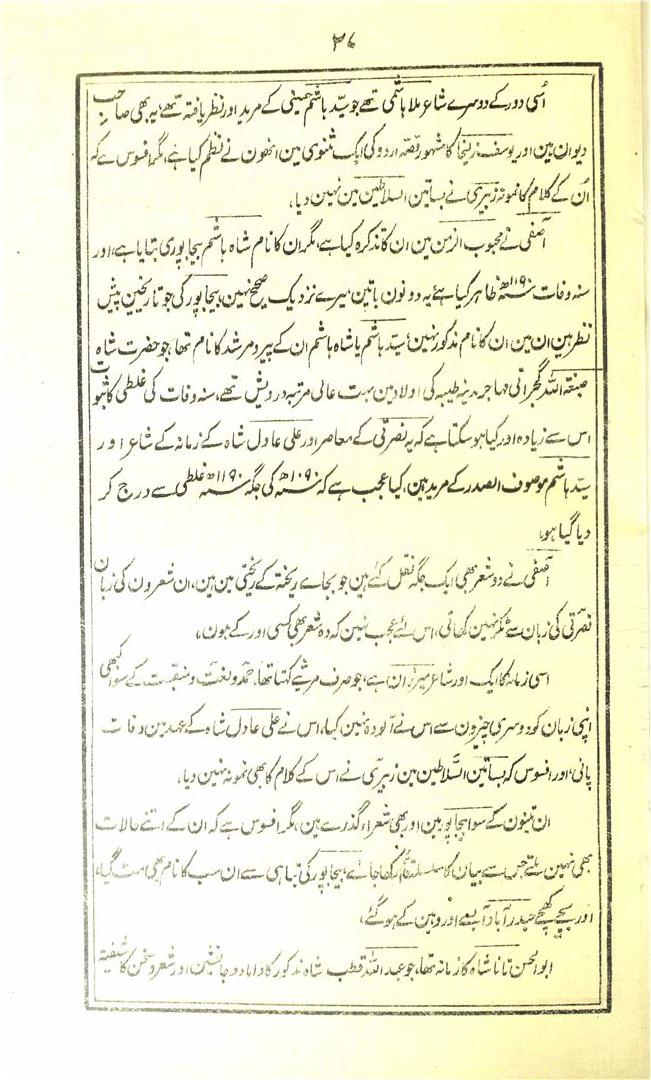 ۳۶
اُسی دور کے دوسرے شاعر ملا ہاشمی تھے جو سیّد ہاشم حسینی کے مرید اور نظر یافتہ تھے، یہ بھی صاحب
دیوان ہین اور یوسف زلیخا کا مشہور قصہ اردو کی ایک مثنوی مین انھون نے نظم کیا ہے، مگر افسوس ہے کہ
اُن کے کلام کا نمونہ زبیری نے بساتین السلاطین مین نہین دیا،
آصفی نے محبوب الزمن مین ان کا تذکرہ کیا ہے، مگر ان کا نام شاہ ہاشم بیجاپوری بتایا ہے، اور
سنہ وفات ۱۱۹۰ھ ظاہر کیا ہے یہ دونون باتین میرے نزدیک صحیح نہین، بیجاپور کی جو تاریخین پیش
نظر ہین ان مین ان کا نام مذکور نہین، سیّد ہاشم یا شاہ ہاشم ان کے پیر و مرشد کا نام تھا، جو حضرت شاہ
صبغۃ اللہ گجراتی مہاجر مدینہ طیبہ کی اولاد مین بہت عالی مرتبہ درویش تھے، سنہ وفات کی غلطی کا ثبوت
اس سے زیادہ اور کیا ہوسکتا ہے کہ یہ نصرتی کے معاصر اور علی عادل شاہ کے زمانہ کے شاعر اور
سیّد ہاشم موصوف الصدر کے مرید ہین، کیا عجب ہے کہ ۱۰۹۰ھ کی جگہ ۱۱۹۰ھ غلطی سے درج کر
دیا گیا ہو،
آصفی نے دو شعر بھی ایک جگہ نقل کئے ہین جو بجاے ریختہ کے ریختی مین ہین، ان شعرون کی زبان
نصرتی کی زبان سے ٹکر نہین کھاتی، اس لئے عجب نہین کہ وہ شعر بھی کسی اور کے ہون،
اسی زمانہ کا ایک اور شاعر میرزان ہے، جو صرف مرثیے کہتا تھا، حمد و نعت و منقبت کے سوا کبھی
اپنی زبان کو دوسری چیزون سے اس نے آلودہ نہین کیا، اس نے علی عادل شاہ کے عہد مین وفات
پائی، اور افسوس کہ بساتین السَّلاطین مین زبیری نے اس کے کلام کا بھی نمونہ نہین دیا،
ان تینون کے سوا بیجاپور مین اور بھی شعراء گذرے ہین، مگر افسوس ہے کہ ان کے اتنے حالات
بھی نہین ملتے جس سے بیان کا سلسلہ قائم رکھا جائے، بیجاپور کی تباہی سے ان سب کا نام بھی مٹ گیا،
اور بچے کھچے حیدرآباد آبسے اور وہین کے ہو گئے،
ابوالحسن تانا شاہ کا زمانہ تھا، جو عبداللہ قطب شاہ مذکور کا داماد و جانشین اور شعر و سخن کا شیفتہ